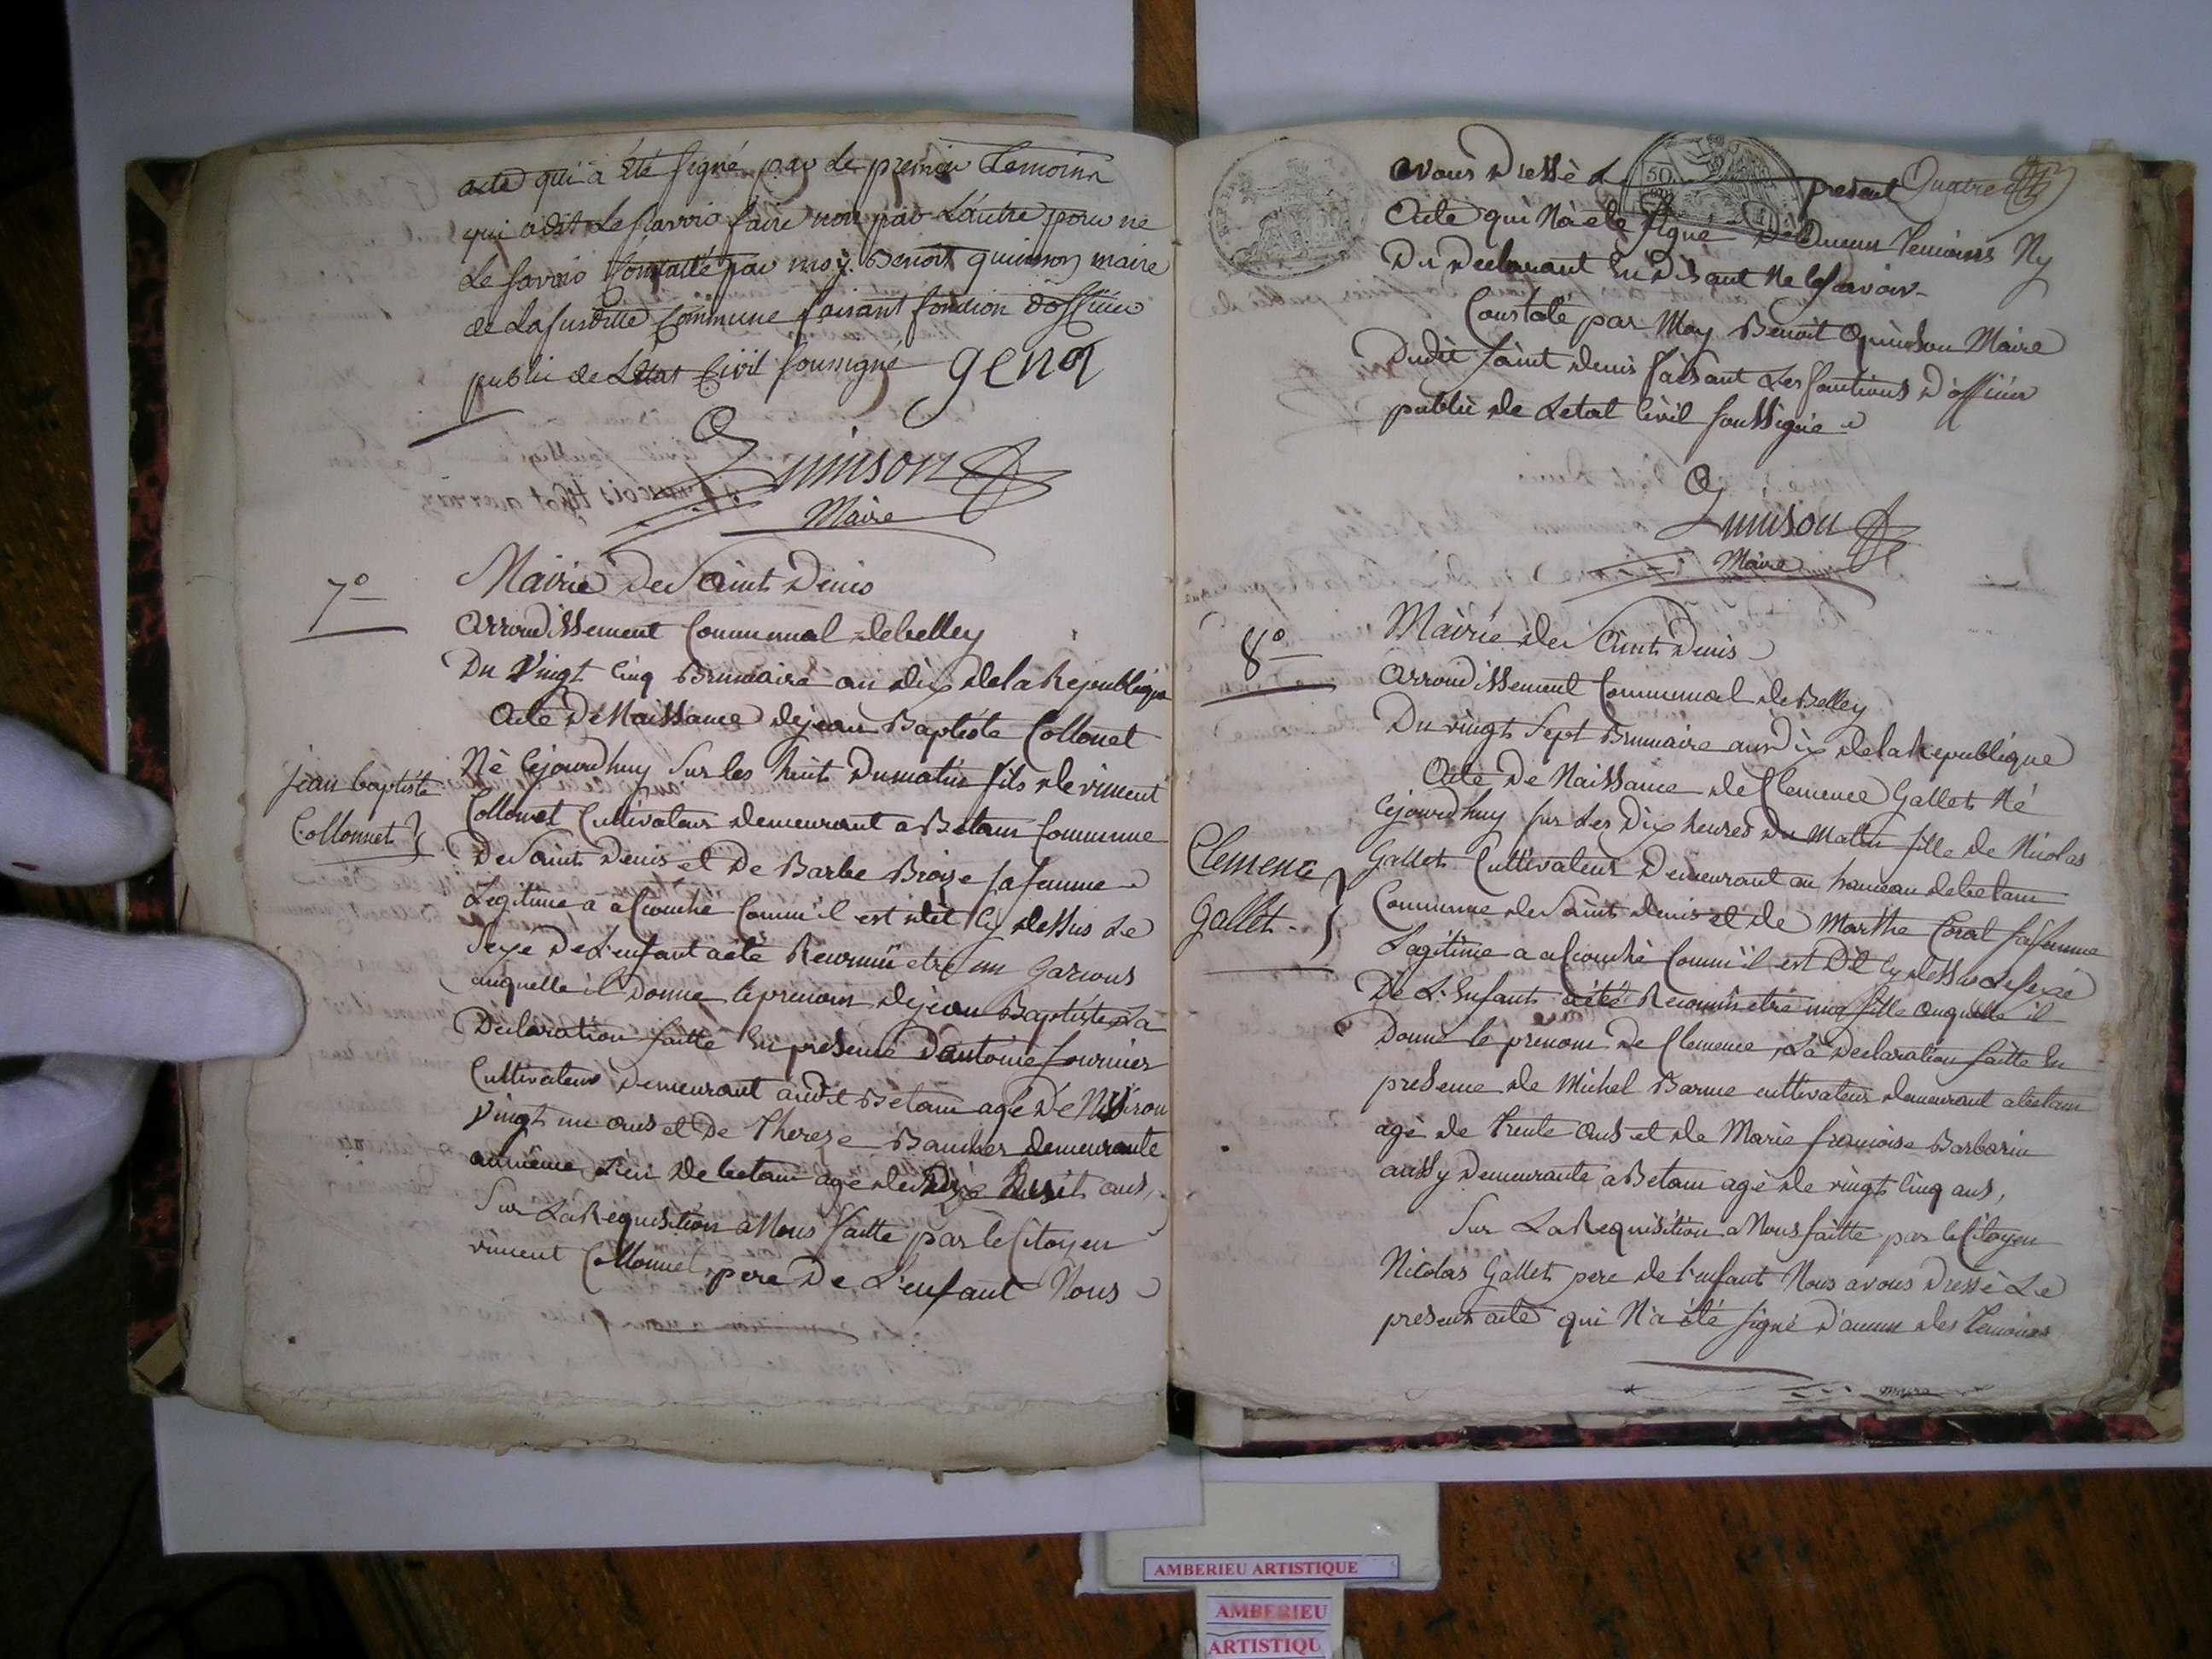 acte qui a Eté signé par Le premier temoin
qui a dit Le savoir faire non par L'autre pour ne
Le savoir Constaté par moy. Benoit quinson maire
de La susditte Commune faisant fonction d'officier
public de L'Etat Civil soussigné genod
Quinson
Maire
7°
Mairie De Saint Denis
Arrondissement Communal de belley
Du Vingt Cinq Brumaire an dix de la Republique
Acte De Naissance de jean Baptiste Collonet
jean baptiste
Collonnet
Né Cejourdhuy Sur les huit Du matin fils de vincent
Collonet Cultivateur demeurant a Betam Commune
De Saint Denis et De Barbe Broize sa femme
Legitime a acouché Comm'il est dit Cy dessus Le
Sexe De L'enfant a été Reconnü etre un Garcons
auquelle il Donne le prenom de jean Baptiste La
Declaration faitte En presence D'antoine fournier
Cultivateur Demeurant audit Betam agé De
vingt un ans et De Thereze Baucher demeurante
au même Lieu De betam age de Dix huit ans,
Sur La Requisition a Nous faitte par le Citoyen
vincent Collonnet pere De L'enfant Nous
avons Dressé Le present Quatre
50
Acte qui N'a eté signé D'Aucun Temoins Ny
Du Declarant En Disant Ne le Savoir
Constaté par Moy Benoit Quinson Maire
Dudit Saint denis faisant Les fonctions D'officier
public de Letat Civil soussigné
Quinson
Maire
8°
Mairie de Saint Denis
Arrondissement Communal de Belley
Du vingt Sept Brumaire an Dix de la Republique
Acte De Naissance de Clemence Gallet Né
Cejourdhuy sur Les Dix heures Du Matin fille de Nicolas
Clemence
Gallet
Gallet Cultivateur Demeurant au hameau de betam
Commune de Saint denis et de Marthe Corat sa femme
Lagitime a acouché Comm'il est Dit Cy dessus Le sexe
De L'Enfant a été Reconnü etre une fille auquelle il
Donne le prenom De Clemence, La Declaration faitte En
presence de Michel Barme cultivateur demeurant a betam
agé de trente ans et de Marie francoise Barbarin
aussy Demeurante a Betam agé de vingt Cinq ans,
Sur La Requisition a Nous faitte par le Citoyen
Nicolas Gallet pere de l'enfant Nous avons Dressé Le
present acte qui N'a été signé D'aucun des Temoins
maire
AMBERIEU ARTISTIQUE
AMBERIEU
ARTISTIQU